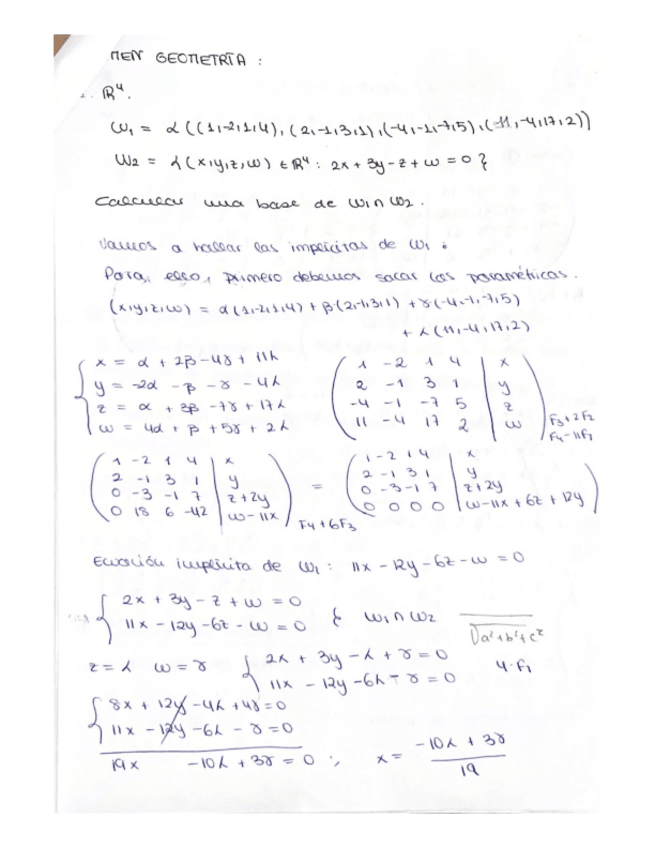 MEN GEOMETRÍA :
R⁴.
W₁ = L((1,-2,1,4), (2,-1,3,1), (-4,-1,-7,5), (11,-4,17,2))
W₂ = {(x,y,z,w) ∈ R⁴ : 2x + 3y - z + w = 0}
Calcular una base de W₁∩W₂.
Vamos a hallar las implícitas de W₁ :
Para, ello, primero debemos sacar las paramétricas.
(x,y,z,w) = α(1,-2,1,4) + β(2,-1,3,1) + γ(-4,-1,-7,5)
+ λ(11,-4,17,2)
x = α + 2β - 4γ + 11λ
y = -2α - β - γ - 4λ
z = α + 3β - 7γ + 17λ
w = 4α + β + 5γ + 2λ
1 -2 1 4 | x
2 -1 3 1 | y
-4 -1 -7 5 | z
11 -4 17 2 | w
F₃+2F₂
F₄-11F₁
1 -2 1 4 | x
2 -1 3 1 | y
0 -3 -1 7 | z+2y
0 18 6 -42 | w-11x
F₄+6F₃
=
1 -2 1 4 | x
2 -1 3 1 | y
0 -3 -1 7 | z+2y
0 0 0 0 | w-11x+6z+12y
Ecuación implícita de W₁ : 11x - 12y - 6z - w = 0
2x + 3y - z + w = 0
11x - 12y - 6z - w = 0
} W₁∩W₂
√a²+b²+c²
z = λ w = γ
2x + 3y - λ + γ = 0
11x - 12y - 6λ - γ = 0
4·F₁
8x + 12y - 4λ + 4γ = 0
11x - 12y - 6λ - γ = 0
19x - 10λ + 3γ = 0 ; x = (-10λ + 3γ)/19